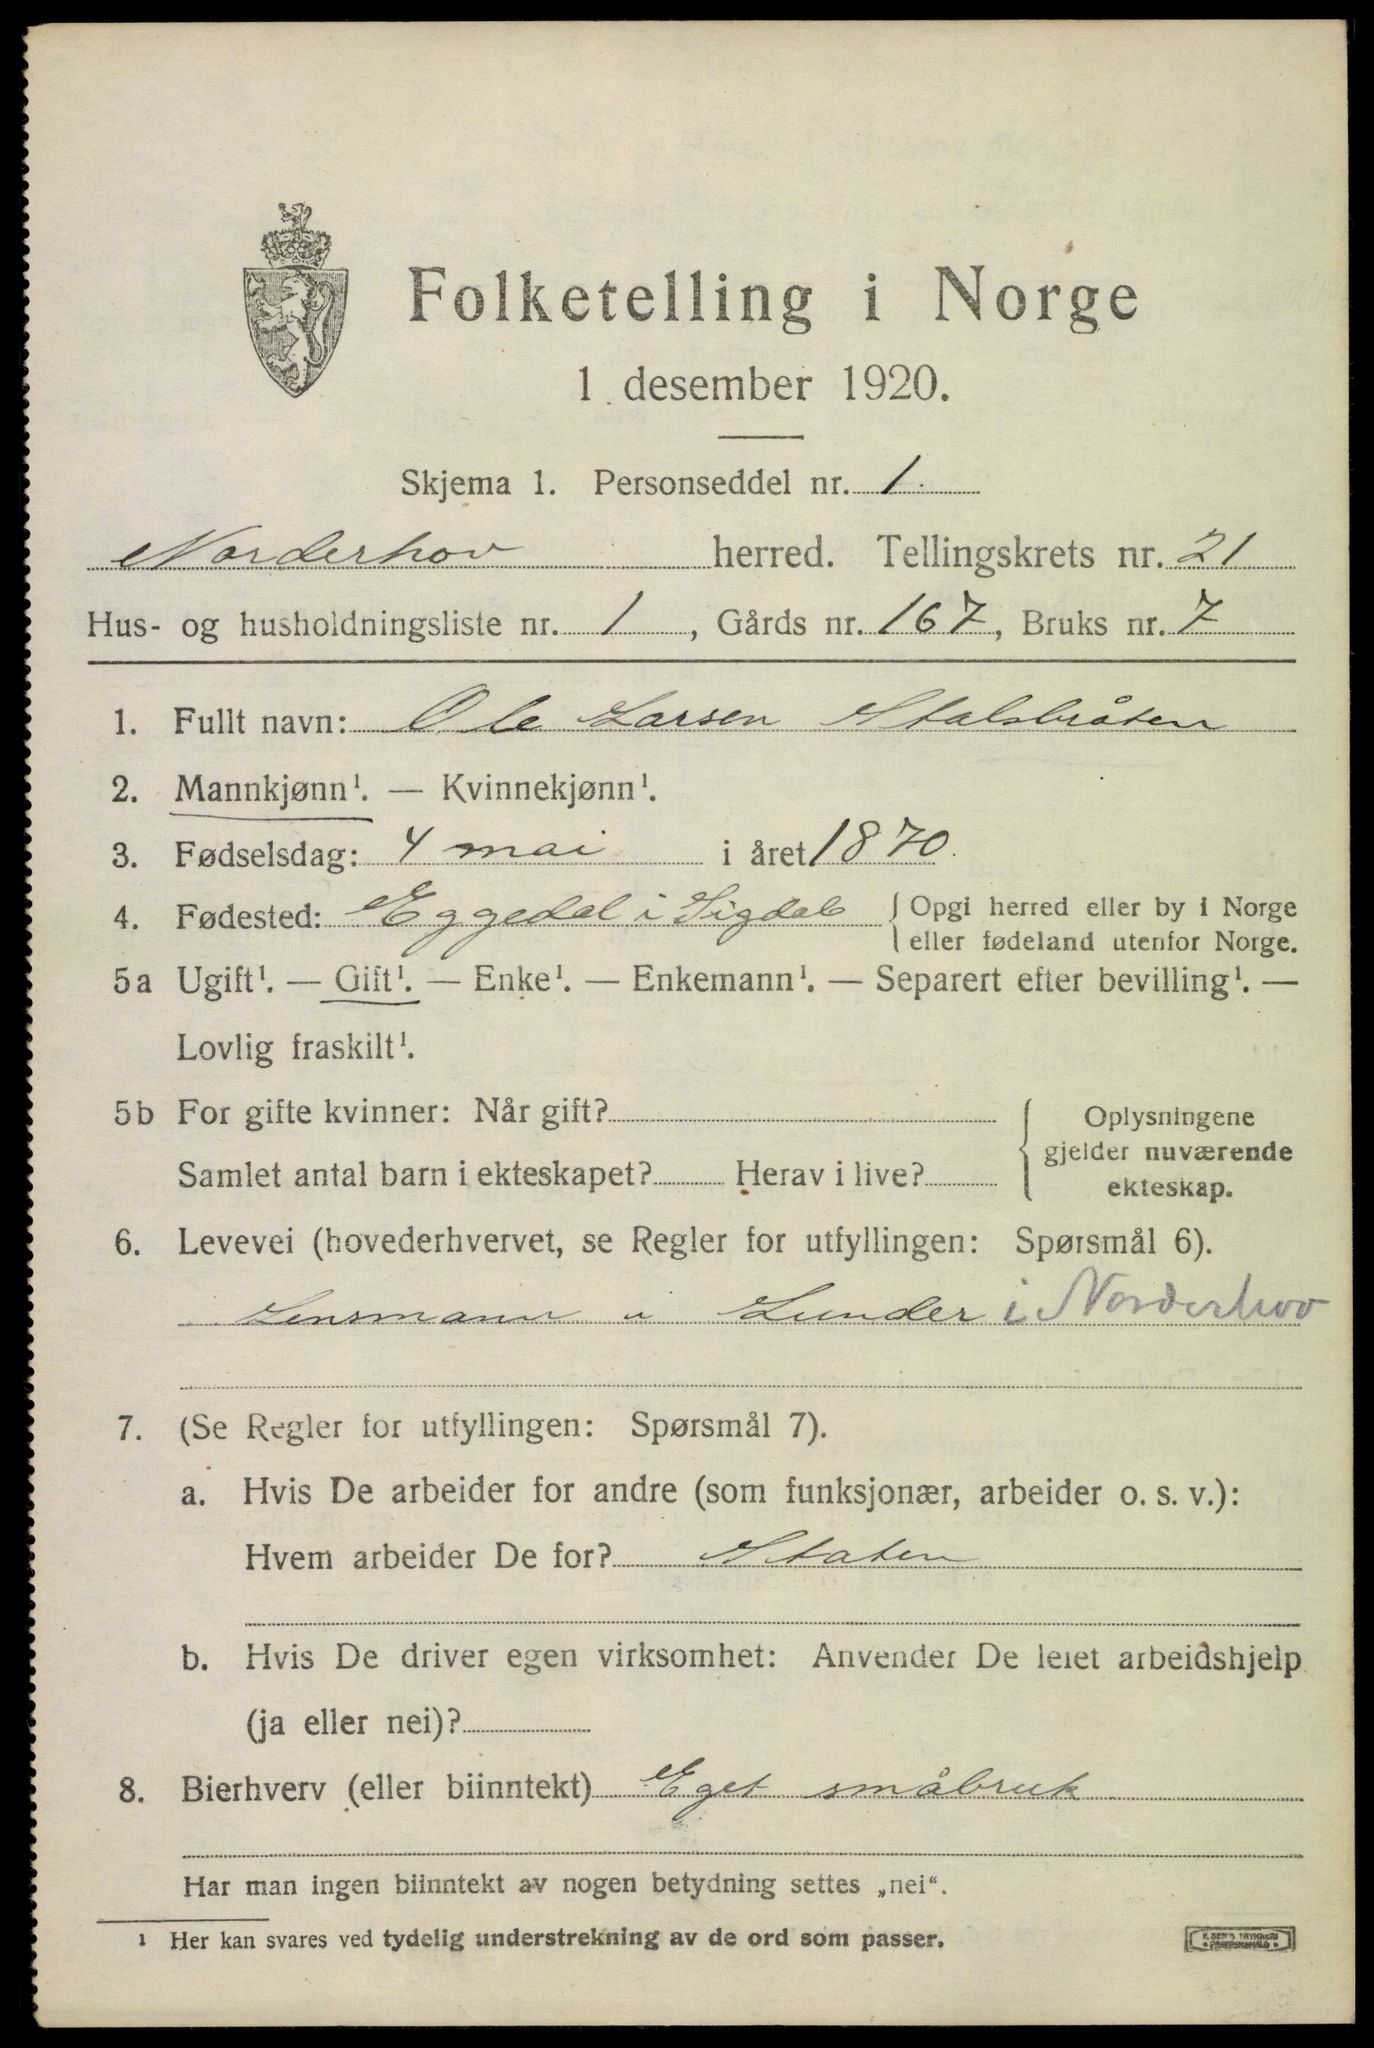 Folketelling i Norge
1 desember 1920.
Skjema 1. Personseddel nr. 1.
Norderhov herred. Tellingskrets nr. 21
Hus- og husholdningsliste nr. 1, Gårds nr. 167, Bruks nr. 7
1. Fullt navn: Ole Larsen Stalsbråten
2. Mannkjønn¹. — Kvinnekjønn¹.
3. Fødselsdag: 4 mai i året 1870.
4. Fødested: Eggedal i Sigdal { Opgi herred eller by i Norge
eller fødeland utenfor Norge.
5a Ugift¹. — Gift¹. — Enke¹. — Enkemann¹. — Separert efter bevilling¹. —
Lovlig fraskilt¹.
5b For gifte kvinner: Når gift?
Samlet antal barn i ekteskapet? Herav i live?
Oplysningene
gjelder nuværende
ekteskap.
6. Levevei (hovederhvervet, se Regler for utfyllingen: Spørsmål 6).
Lensmann i Lunder i Norderhov
7. (Se Regler for utfyllingen: Spørsmål 7).
a. Hvis De arbeider for andre (som funksjonær, arbeider o. s. v.):
Hvem arbeider De for? Staten
b. Hvis De driver egen virksomhet: Anvender De leiet arbeidshjelp
(ja eller nei)?
8. Bierhverv (eller biinntekt) Eget småbruk
Har man ingen biinntekt av nogen betydning settes „nei“.
¹ Her kan svares ved tydelig understrekning av de ord som passer.